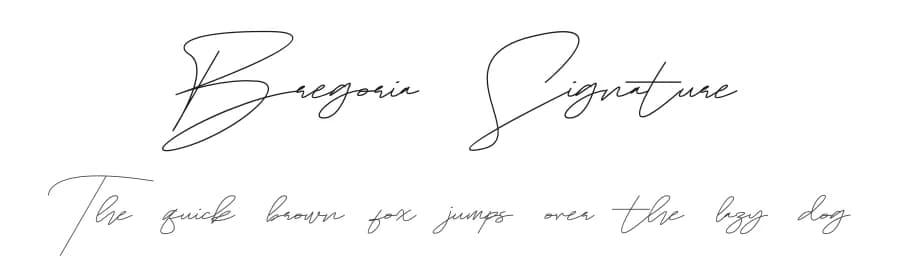 Bregoria Signature
The quick brown fox jumps over the lazy dog